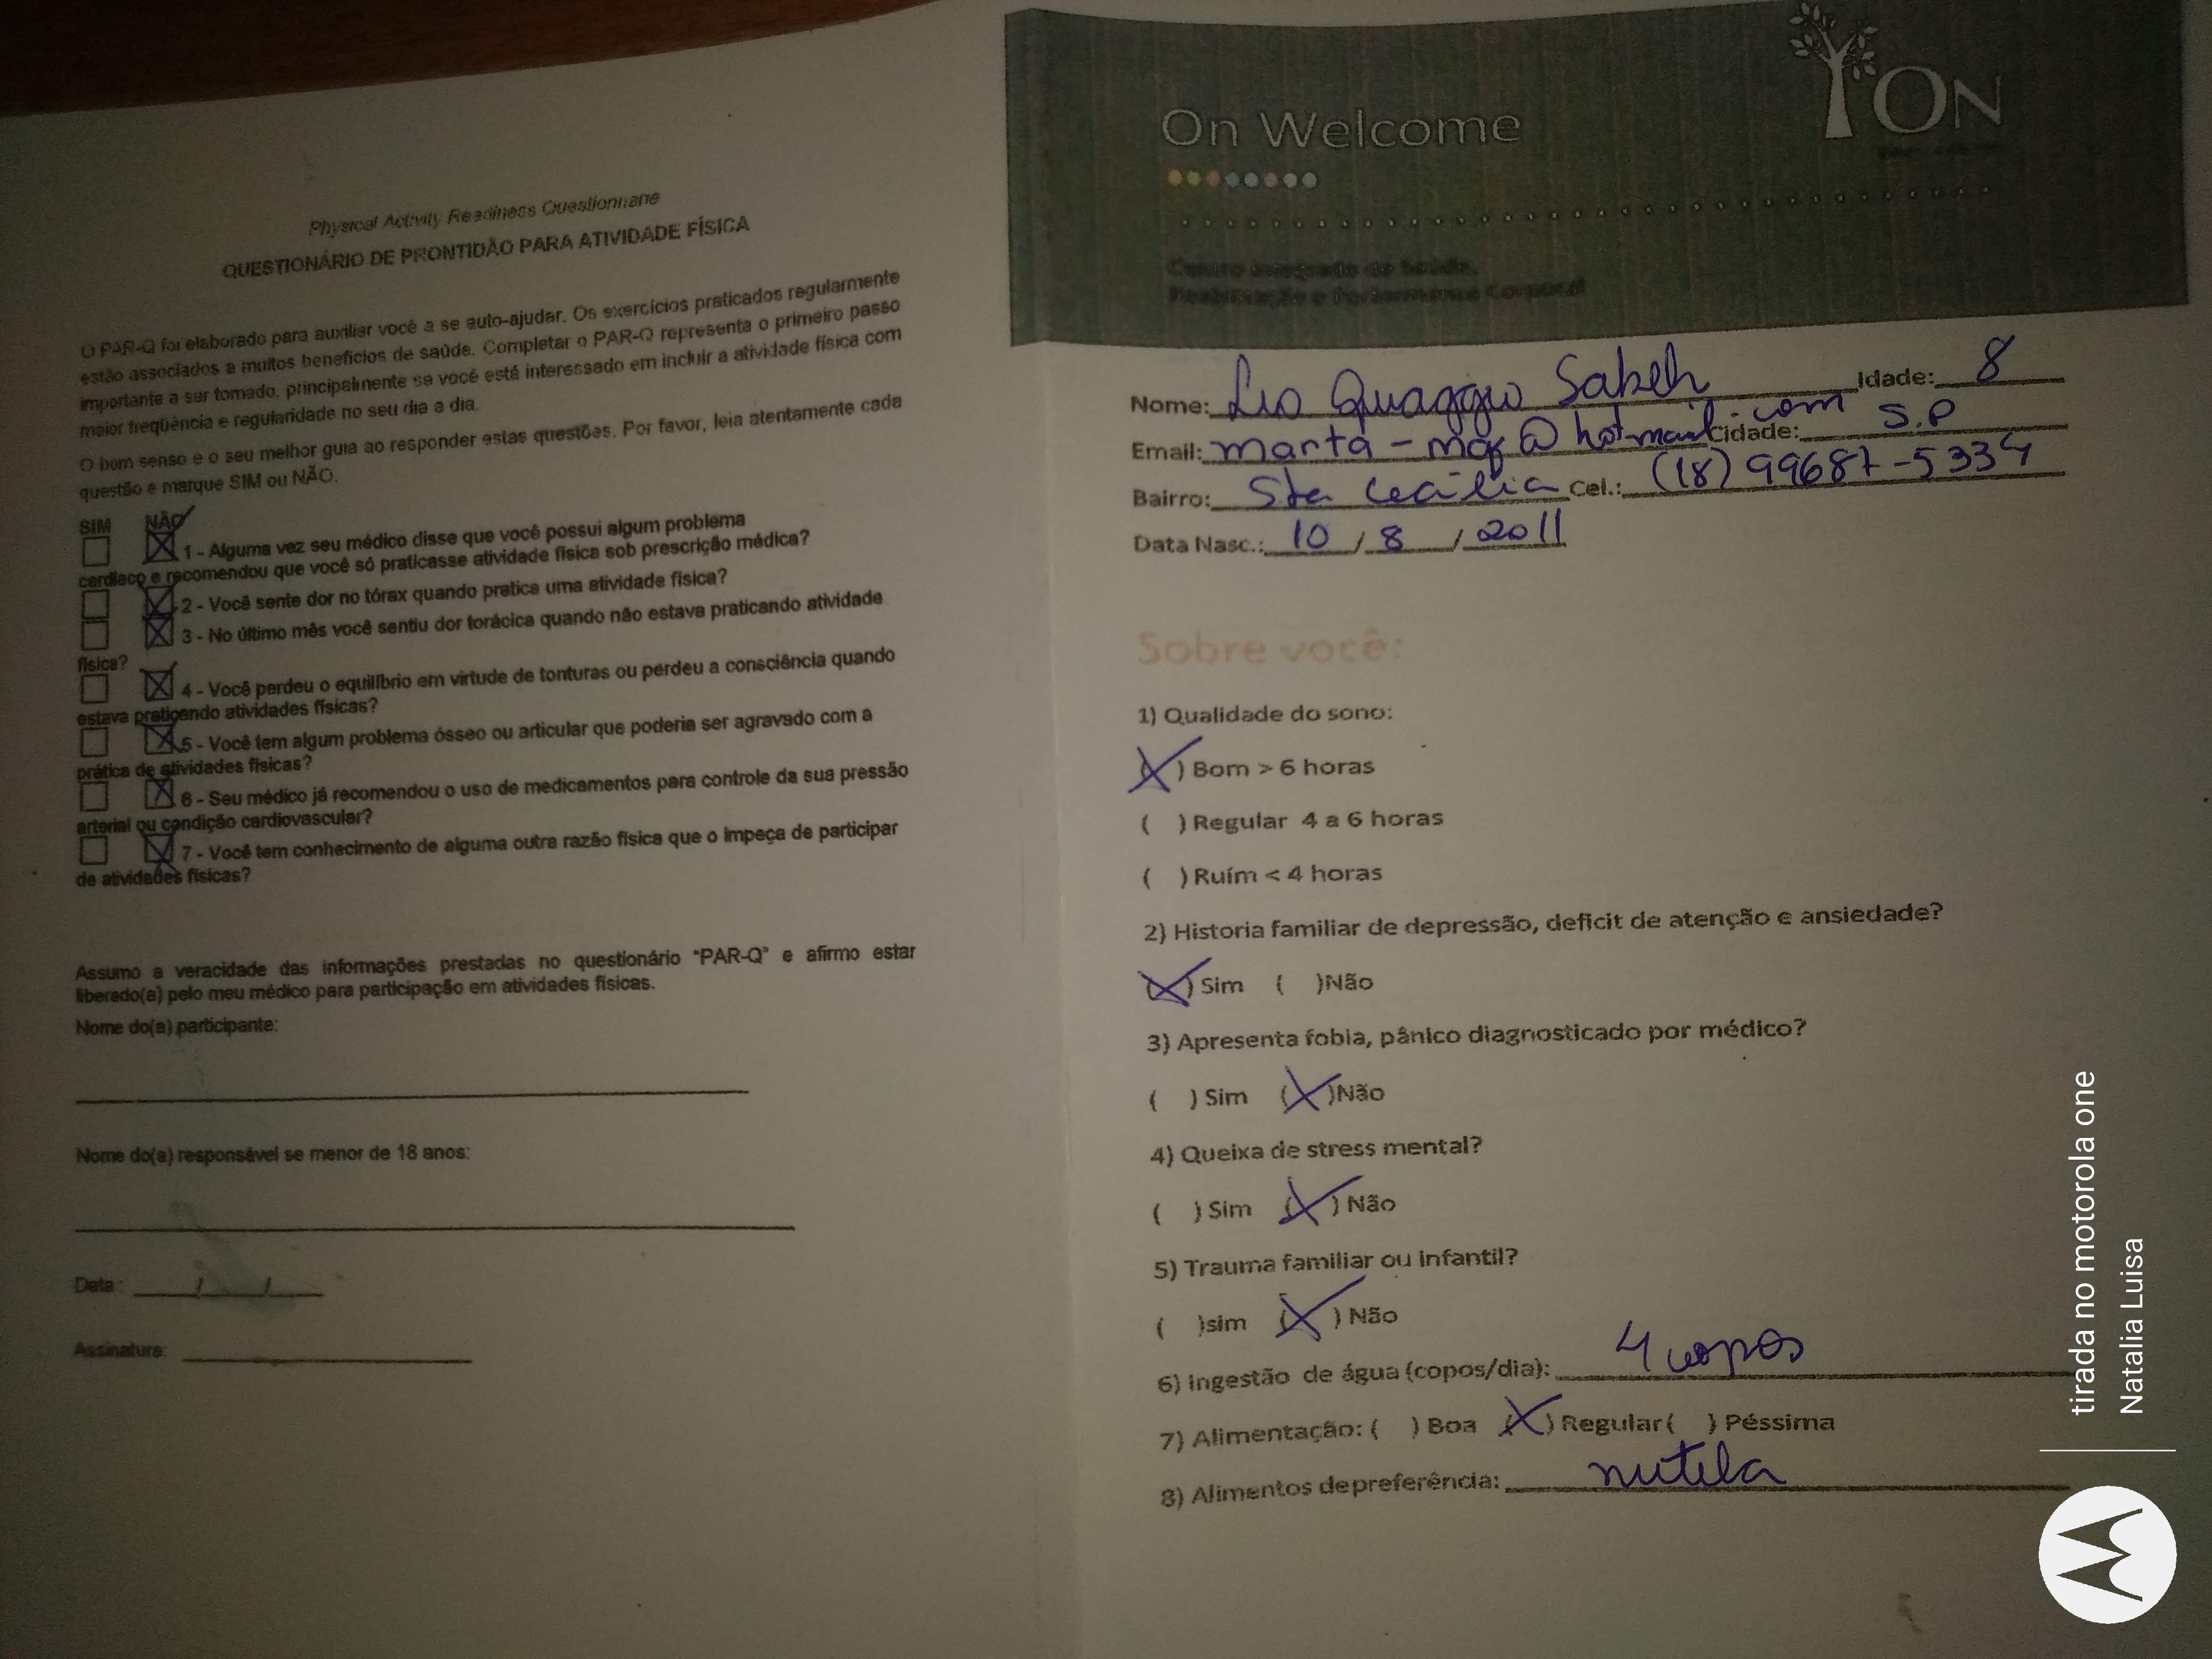 Physical Activity Readiness Questionnaire
QUESTIONÁRIO DE PRONTIDÃO PARA ATIVIDADE FÍSICA
O PAR-Q foi elaborado para auxiliar você a se auto-ajudar. Os exercícios praticados regularmente
estão associados a muitos benefícios de saúde. Completar o PAR-Q representa o primeiro passo
importante a ser tomado, principalmente se você está interessado em incluir a atividade física com
maior freqüência e regularidade no seu dia a dia.
O bom senso é o seu melhor guia ao responder estas questões. Por favor, leia atentamente cada
questão e marque SIM ou NÃO.
SIM NÃO
1 - Alguma vez seu médico disse que você possui algum problema
cardíaco e recomendou que você só praticasse atividade física sob prescrição médica?
2 - Você sente dor no tórax quando pratica uma atividade física?
3 - No último mês você sentiu dor torácica quando não estava praticando atividade
física?
4 - Você perdeu o equilíbrio em virtude de tonturas ou perdeu a consciência quando
estava praticando atividades físicas?
5 - Você tem algum problema ósseo ou articular que poderia ser agravado com a
prática de atividades físicas?
6 - Seu médico já recomendou o uso de medicamentos para controle da sua pressão
arterial ou condição cardiovascular?
7 - Você tem conhecimento de alguma outra razão física que o impeça de participar
de atividades físicas?
Assumo a veracidade das informações prestadas no questionário "PAR-Q" e afirmo estar
liberado(a) pelo meu médico para participação em atividades físicas.
Nome do(a) participante:
Nome do(a) responsável se menor de 18 anos:
Data: / /
Assinatura:
On Welcome
ON
Nome: Sabeh Idade: 8
Email: marta-mqf@hotmail.com Cidade: S.P
Bairro: Sta Cecília Cel.: (18) 99687-5334
Data Nasc.: 10 / 8 / 2011
Sobre você:
1) Qualidade do sono:
(X) Bom > 6 horas
( ) Regular 4 a 6 horas
( ) Ruím < 4 horas
2) Historia familiar de depressão, deficit de atenção e ansiedade?
(X) Sim ( )Não
3) Apresenta fobia, pânico diagnosticado por médico?
( ) Sim (X)Não
4) Queixa de stress mental?
( ) Sim (X) Não
5) Trauma familiar ou infantil?
( )sim (X) Não
6) ingestão de água (copos/dia): 4 copos
7) Alimentação: ( ) Boa (X) Regular ( ) Péssima
8) Alimentos de preferência: nutela
tirada no motorola one
Natalia Luisa